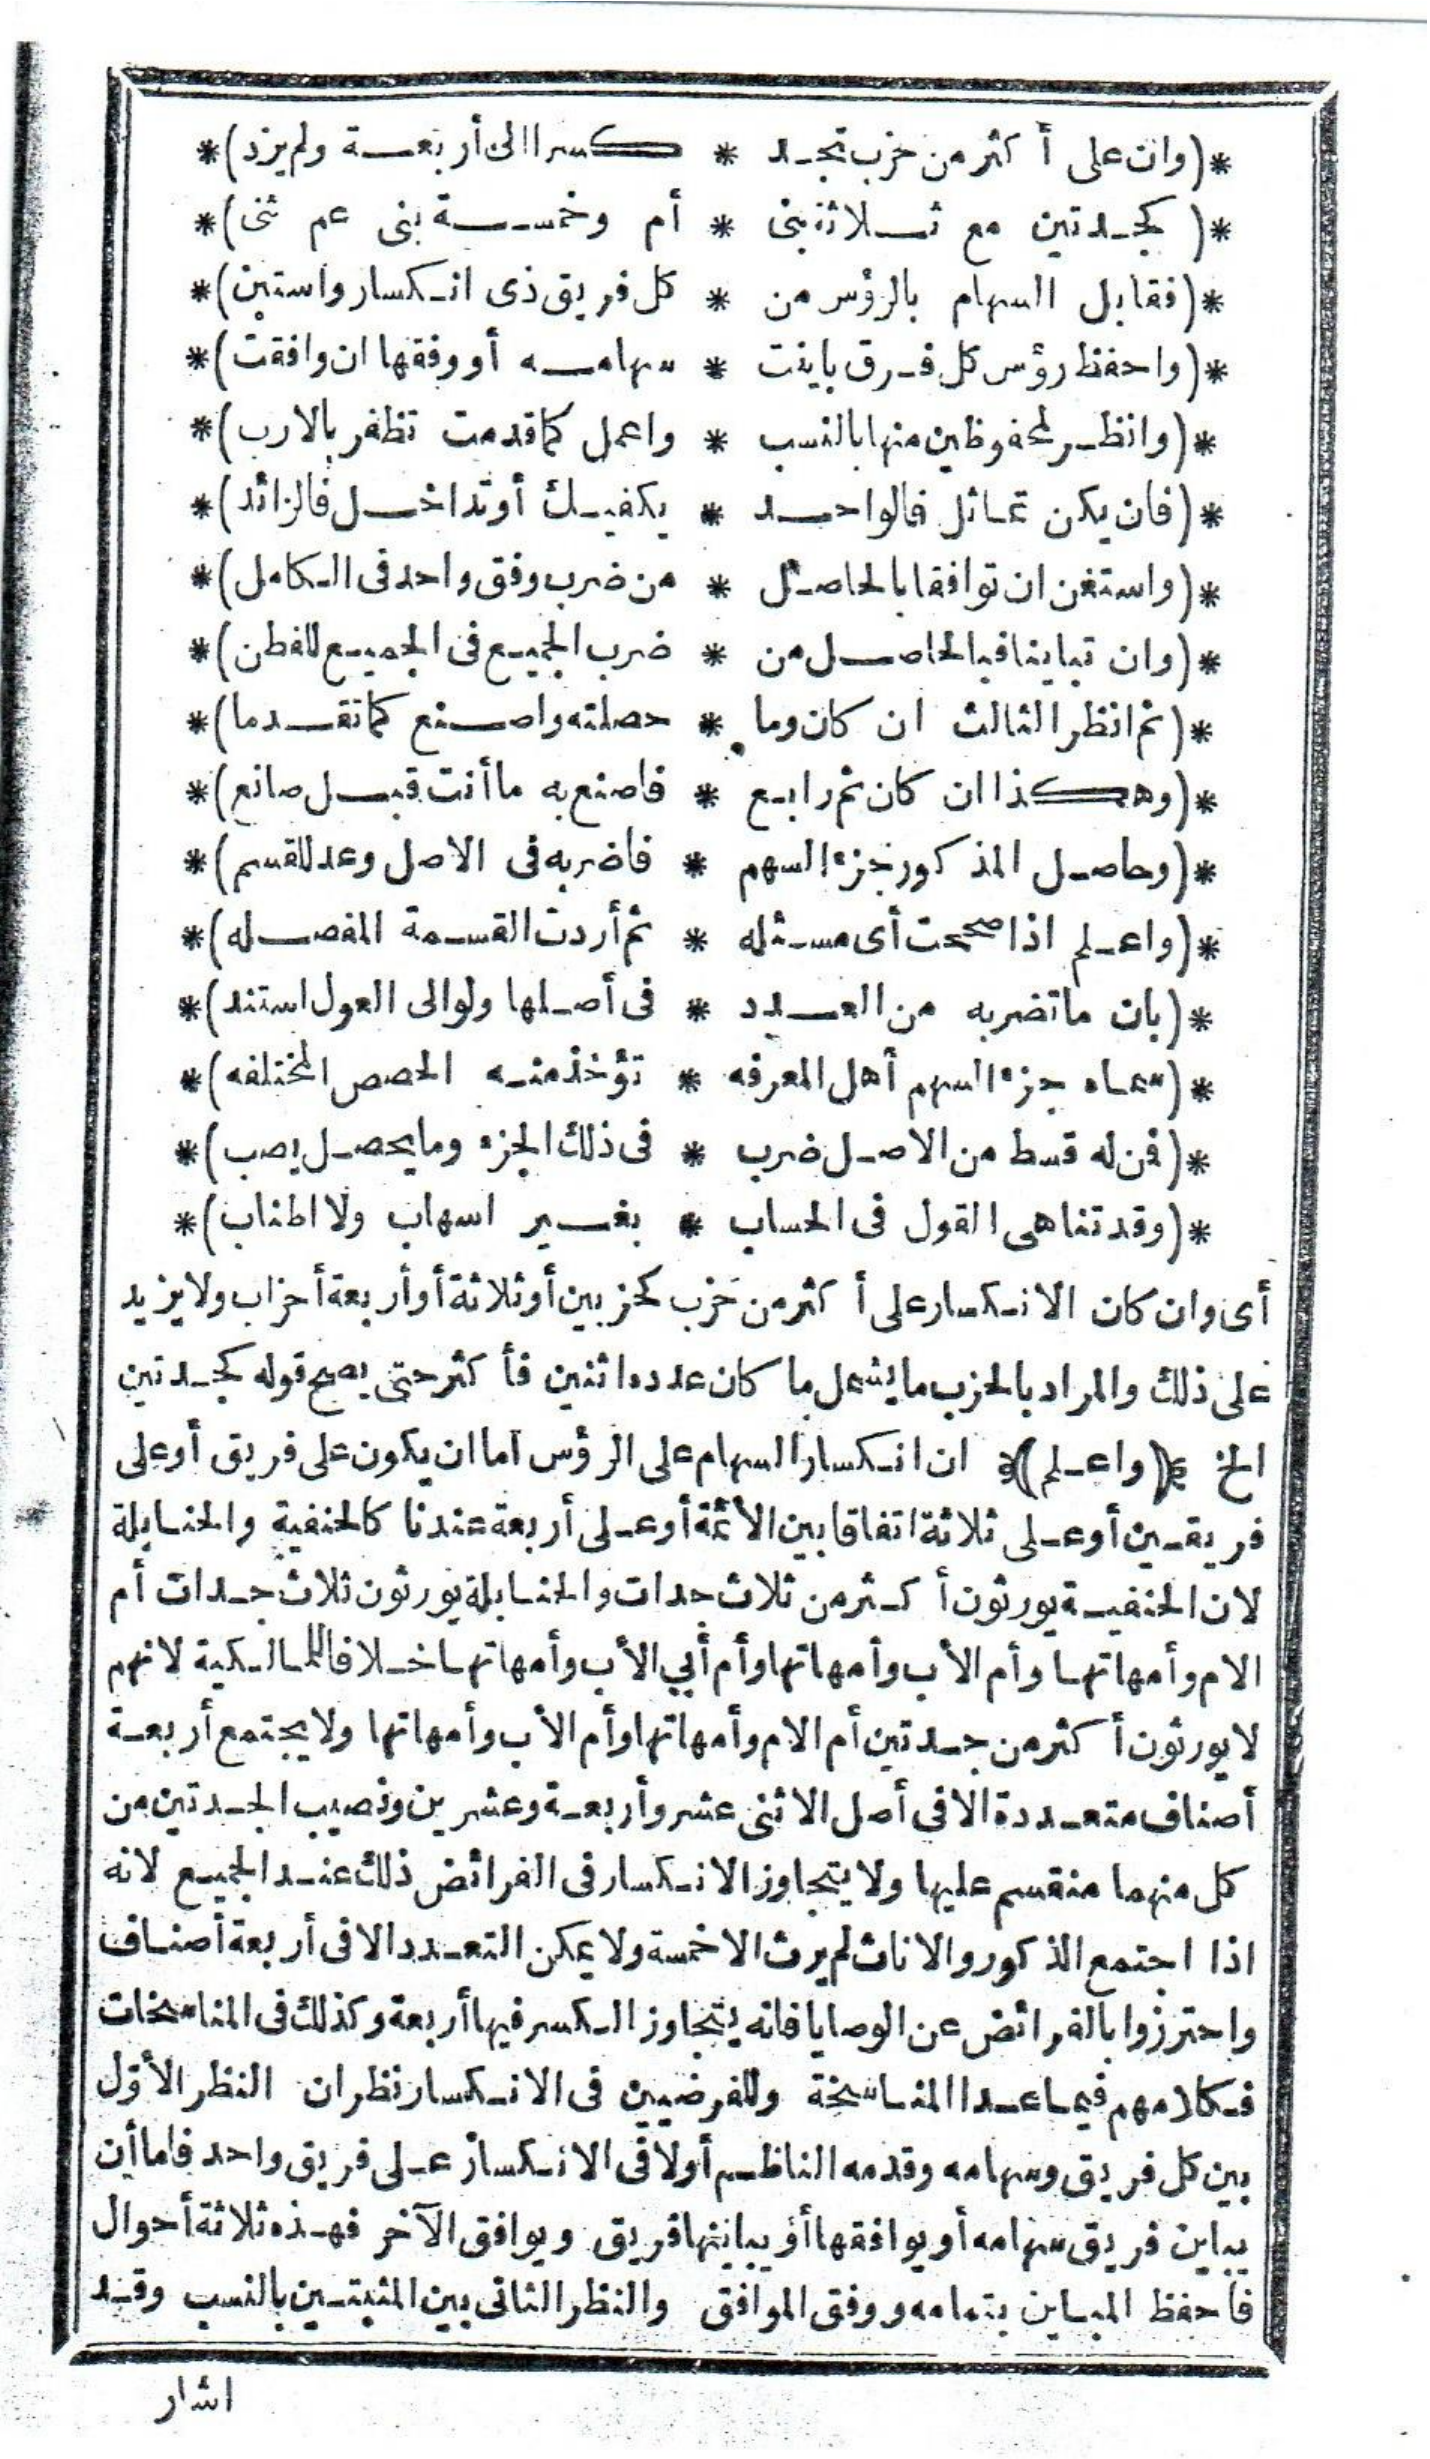 *(وان على أكثر من حزب تجد * كسرا الى أربعة ولم يزد)*
*(كجدتين مع ثلاثة بنى * أم وخمسة بنى عم ثنى)*
*(فقابل السهام بالرؤس من * كل فريق ذى انكسار واستبن)*
*(واحفظ رؤس كل فرق باينت * سهامه أو وفقها ان وافقت)*
*(وانظر لمحفوظين منها بالنسب * واعمل كما قدمت تظفر بالارب)*
*(فان يكن تماثل فالواحد * يكفيك أو تداخل فالزائد)*
*(واستغن ان توافقا بالحاصل * من ضرب وفق واحد فى الكامل)*
*(وان تباينا فبالحاصل من * ضرب الجميع فى الجميع للفطن)*
*(ثم انظر الثالث ان كان وما * حصلته واصنع كما تقدما)*
*(وهكذا ان كان ثم رابع * فاصنع به ما أنت قبل صانع)*
*(وحاصل المذكور جزء السهم * فاضربه فى الاصل وعد للقسم)*
*(واعلم اذا صححت أى مسئله * ثم أردت القسمة المفصله)*
*(بان ما تضربه من العدد * فى أصلها ولو الى العول استند)*
*(سماه جزء السهم أهل المعرفه * تؤخذ منه الحصص المختلفه)*
*(فمن له قسط من الاصل ضرب * فى ذلك الجزء وما يحصل يصب)*
*(وقد تناهى القول فى الحساب * بغير اسهاب ولا اطناب)*
أى وان كان الانكسار على أكثر من حزب كحزبين أو ثلاثة أو أربعة أحزاب ولا يزيد
على ذلك والمراد بالحزب ما يشمل ما كان عدده اثنين فأكثر حتى يصح قوله كجدتين
الخ ﴿واعلم﴾ ان انكسار السهام على الرؤس اما ان يكون على فريق أو على
فريقين أو على ثلاثة اتفاقا بين الأئمة أو على أربعة عندنا كالحنفية والحنابلة
لان الحنفية يورثون أكثر من ثلاث جدات والحنابلة يورثون ثلاث جدات أم
الام وأمهاتها وأم الأب وأمهاتها وأم أبي الأب وأمهاتها خلافا للمالكية لانهم
لا يورثون أكثر من جدتين أم الام وأمهاتها وأم الأب وأمهاتها ولا يجتمع أربعة
أصناف متعددة الا فى أصل الاثنى عشر وأربعة وعشرين ونصيب الجدتين من
كل منهما منقسم عليها ولا يتجاوز الانكسار فى الفرائض ذلك عند الجميع لانه
اذا اجتمع الذكور والاناث لم يرث الا خمسة ولا يمكن التعدد الا فى أربعة أصناف
واحترزوا بالفرائض عن الوصايا فانه يتجاوز الكسر فيها أربعة وكذلك فى المناسخات
فكلامهم فيما عدا المناسخة وللفرضيين فى الانكسار نظران النظر الأوّل
بين كل فريق وسهامه وقدمه الناظم أولا فى الانكسار على فريق واحد فاما أن
يباين فريق سهامه أو يوافقها أو يباينها فريق ويوافق الآخر فهذه ثلاثة أحوال
فاحفظ المباين بتمامه ووفق الموافق والنظر الثانى بين المثبتين بالنسب وقد
اشار